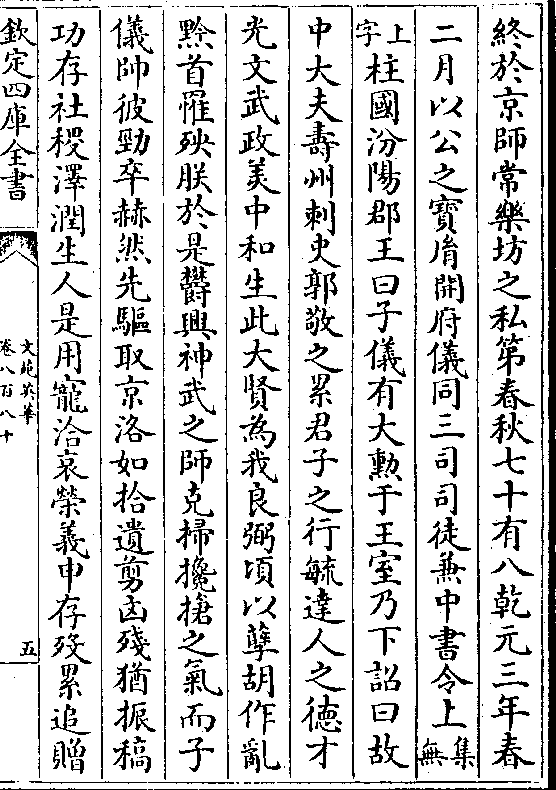 終於京師常樂坊之私第春秋七十有八乾元三年春
二月以公之寳𦙍開府儀同三司司徒兼中書令上集無
上字柱國汾陽郡王曰子儀有大勲于王室乃下詔曰故
中大夫壽州刺史郭敬之累君子之行毓達人之徳才
光文武政美中和生此大賢為我良弼頃以孽胡作亂
黔首罹殃朕於是欝興神武之師克掃攙搶之氣而子
儀帥彼勁卒赫然先驅取京洛如拾遺剪凶殘猶振稿
功存社稷澤潤生人是用寵洽哀榮義申存歿累追贈
欽定四庫全書
文苑英華
卷八百八十
五